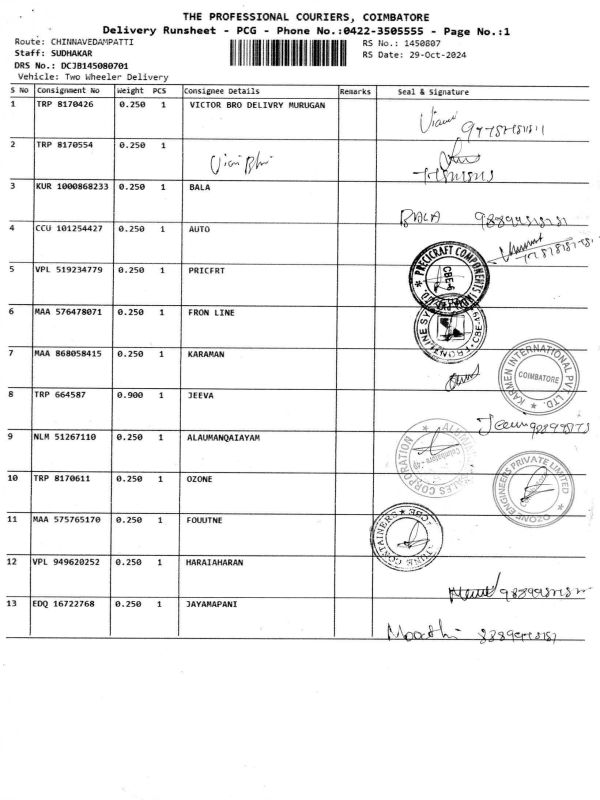 THE PROFESSIONAL COURIERS, COIMBATORE
Delivery Runsheet - PCG - Phone No.:0422-3505555 - Page No.:1
Route: CHINNAVEDAMPATTI RS No.: 1450807
Staff: SUDHAKAR RS Date: 29-Oct-2024
DRS No.: DCJB145080701
Vehicle: Two Wheeler Delivery
S No Consignment No Weight PCS Consignee Details Remarks Seal & Signature
1 TRP 8170426 0.250 1 VICTOR BRO DELIVRY MURUGAN
2 TRP 8170554 0.250 1
3 KUR 1000868233 0.250 1 BALA
BALA
4 CCU 101254427 0.250 1 AUTO
5 VPL 519234779 0.250 1 PRICFRT
PRECICRAFT COMPONENTS CBE-6
6 MAA 576478071 0.250 1 FRON LINE
7 MAA 868058415 0.250 1 KARAMAN
KARMEN INTERNATIONAL PVT. LTD. COIMBATORE
8 TRP 664587 0.900 1 JEEVA
9 NLM 51267110 0.250 1 ALAUMANQAIAYAM
SALES CORPORATION Coimbatore - 49
10 TRP 8170611 0.250 1 OZONE
OZONE ENGINEERS PRIVATE LIMITED
11 MAA 575765170 0.250 1 FOUUTNE
CONTAINERS
12 VPL 949620252 0.250 1 HARAIAHARAN
13 EDQ 16722768 0.250 1 JAYAMAPANI